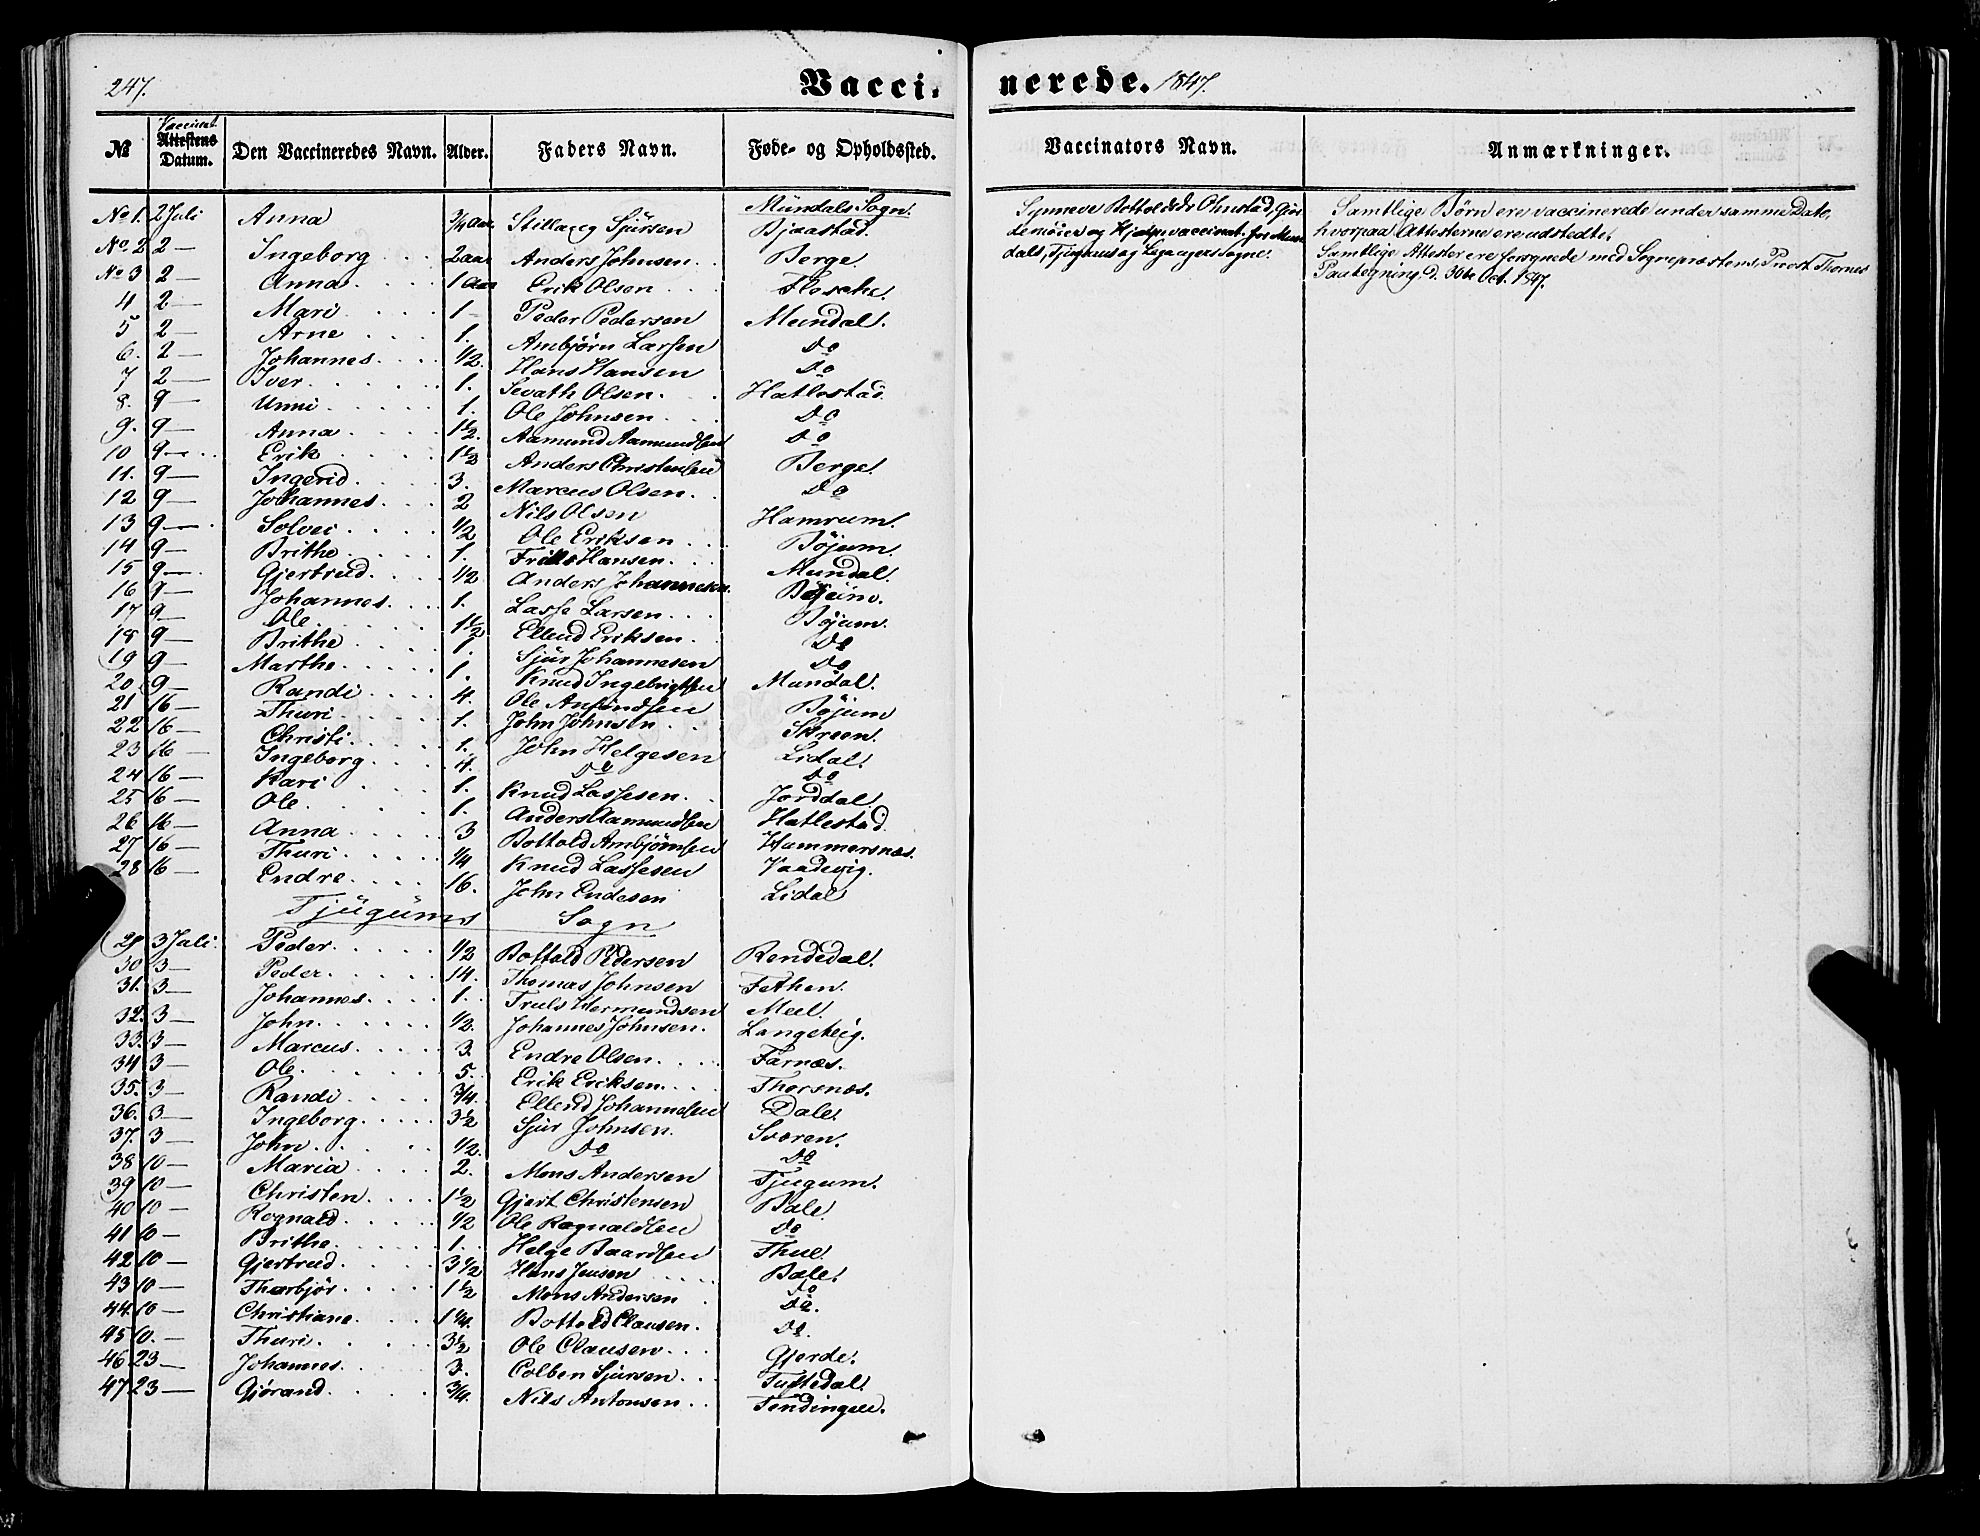 247.
Vaccinerede. 1847.
№ | Vaccinat. Attestens Datum. | Den Vaccineredes Navn. | Alder. | Faders Navn. | Føde- og Opholdssted. | Vaccinators Navn. | Anmærkninger.
Mundals Sogn.
No 1. 2 Juli Anna 3/4 Aar Stillaug Sjursen Bjaastad.
No 2 2 — Ingeborg 2 aar Anders Johnsen Berge.
No 3 2 — Anna 1 Aar Erik Olsen
4 2 — Mari 1 — Peder Pedersen Mundal.
5 2 — Arne 1. Ambjørn Larsen Do
6. 2 — Johannes 1/2. Hans Hansen Do
7 2 — Iver 1. Sevath Olsen Hatlestad.
8. 9 — Unni 1. Ole Johnsen Do
9. 9 — Anna 1 1/2. Aamund Aamundsen Do
10 9 — Erik 1 1/2 Anders Christensen Berge.
11. 9 — Ingerid 3. Marcus Olsen Do
12 9 — Johannes 2 Nils Olsen Hamrum.
13 9 — Solvei 1/2 Ole Eriksen Böjum.
14 9 — Brithe 1. Hansen Mundal.
15 9 — Gjertrud 1/2 Anders Johannesen Böjum.
16 9 — Johannes 1. Lasse Larsen Böjum.
17 9 — Ole 1 1/2 Ellend Eriksen Do
18 9 — Brithe 1. Sjur Johannesen Do
19 9 — Marthe 1. Knud Ingebrigtsen Mundal.
20 9 — Randi 4. Ole Anfindsen Böjum
21 16 — Thuri 1. John Johnsen Skreen.
22 16 — Christi 1. John Helgesen Lidal.
23 16 — Ingeborg 4. Do Do
24 16 — Kari 1. Knud Lassesen Jorddal.
25 16 — Ole 1. Anders Aamundsen Hatlestad.
26 16 — Anna 3 Bottold Ambjörnsen Hammersnæs.
27 16 — Thuri 1/4 Knud Lassesen Vaadevig.
28 16 — Endre 16. John Endesen Lidal
Tjugums Sogn
29 3 Juli. Peder 1/2 Bottold Pedersen Rendedal.
30 3 — Peder 14. Thomas Johnsen Fethen.
31. 3 — Johannes 1. Truls Hermundsen Meel.
32. 3 — John 1/2. Johannes Johnsen.
33. 3 — Marcus 3 Endre Olsen Farnæs.
34 3 — Ole 5. Erik Eriksen Thorsnæs.
35. 3 — Randi 3/4. Ellend Johannesen Dale.
36. 3 — Ingeborg 3 1/2 Sjur Johnsen. Sværen.
37. 3 — John 1/2. Do Do
38 10 — Maria 2. Mons Andersen Tjugum.
39 10 — Christen 1 1/2 Gjert Christensen Bale.
40 10 — Rognald 1/2 Ole Rognaldsen Do
41 10 — Brithe 1. Helge Baardsen Thue.
42 10 — Gjertrud 3 1/2 Hans Jensen Bale.
43 10 — Thorbjör 1 1/2 Mons Andersen Do
44. 10 — Christiane 1 1/4. Bottold Clausen. Do.
45 10. — Thuri 3 1/2 Ole Clausen Do.
46. 23 — Johannes 3. Colben Sjursen Gjerde.
47. 23 — Gjörand 3/4. Nils Antonsen Tuftedal.
Synneve Bottolsd. Ohnstad, Gjordemoder og Hjælpvaccinat. for Mundals, Tjugums og Leganger Sogne.
Samtlige Börn ere vaccinerede under samme Dato,
hvorpaa Attesterne ere udstedte.
Samtlige Attester ere forsynede med Sognepræstens, Provst Thornes
Paategning, d. 30te Oct. 1847.